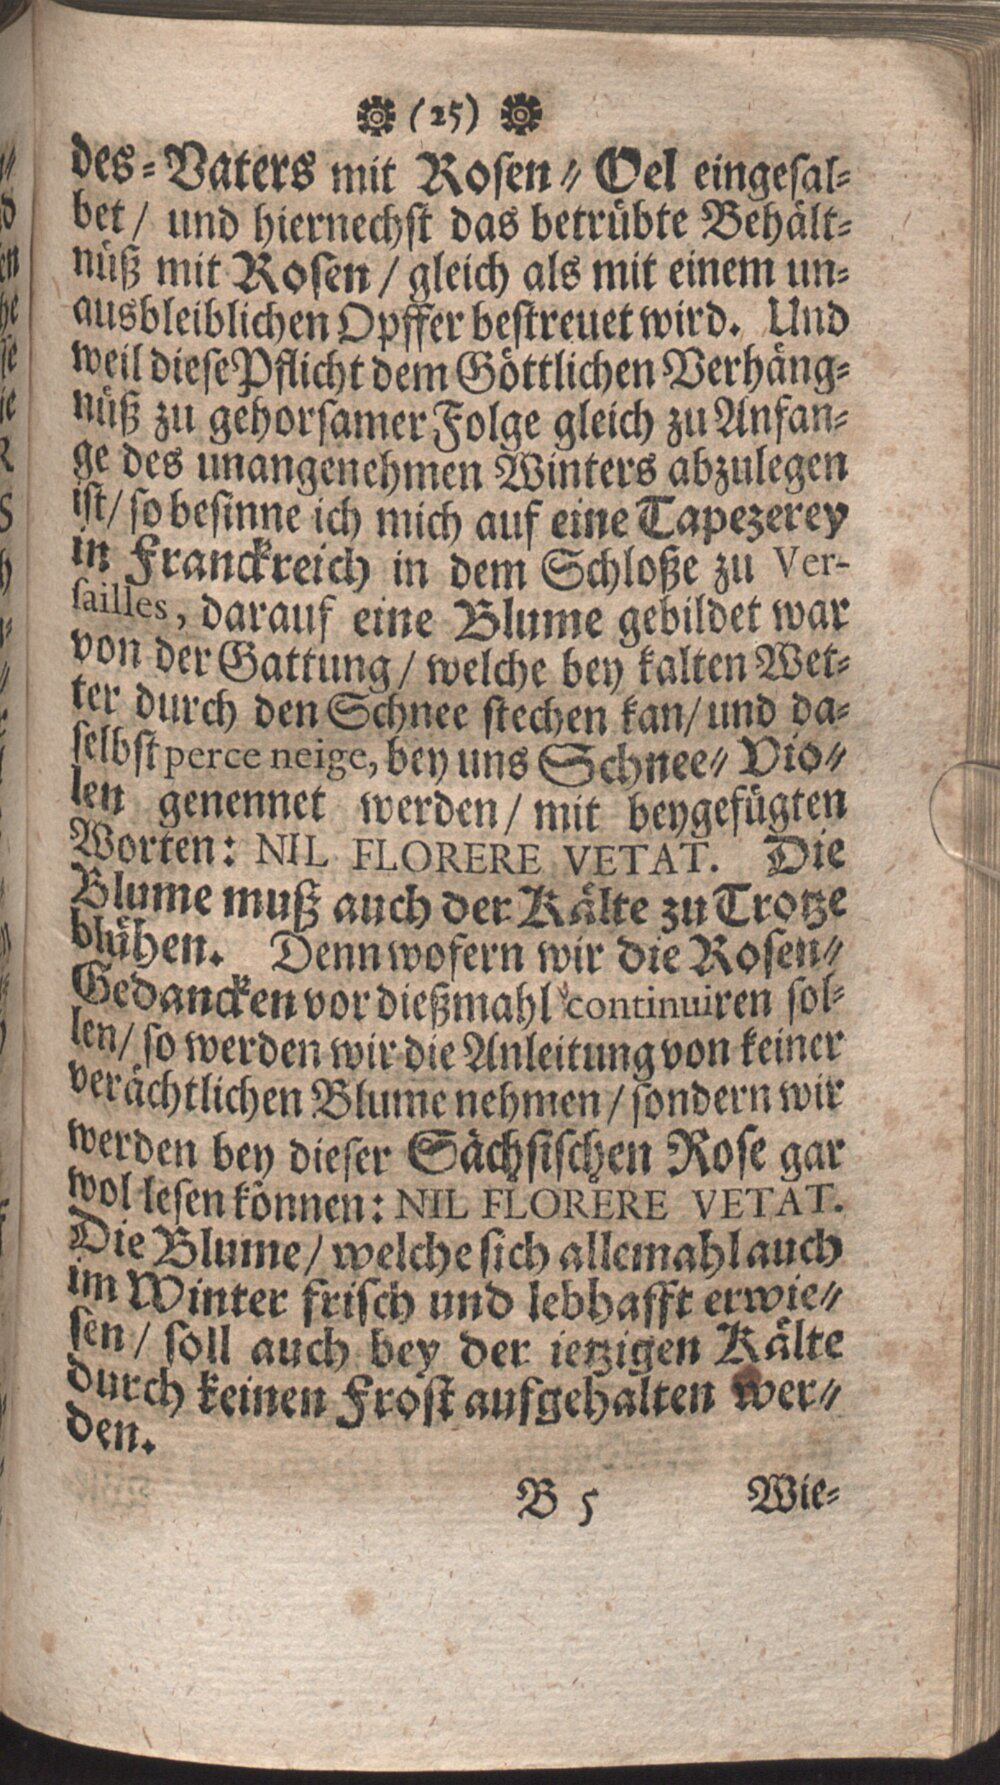 (25)
des-Vaters mit Rosen-Oel eingesal-
bet / und hiernechst das betrübte Behält-
nüß mit Rosen / gleich als mit einem un-
ausbleiblichen Opffer bestreuet wird. Und
weil diese Pflicht dem Göttlichen Verhäng-
nüß zu gehorsamer Folge gleich zu Anfan-
ge des unangenehmen Winters abzulegen
ist / so besinne ich mich auf eine Tapezerey
in Franckreich in dem Schloße zu Ver-
sailles, darauf eine Blume gebildet war
von der Gattung / welche bey kalten Wet-
ter durch den Schnee stechen kan / und da-
selbst perce neige, bey uns Schnee-Vio-
len genennet werden / mit beygefügten
Worten: NIL FLORERE VETAT. Die
Blume muß auch der Kälte zu Trotze
blühen. Denn wofern wir die Rosen-
Gedancken vor dießmahl continuiren sol-
len / so werden wir die Anleitung von keiner
verächtlichen Blume nehmen / sondern wir
werden bey dieser Sächsischen Rose gar
wol lesen können: NIL FLORERE VETAT.
Die Blume / welche sich allemahl auch
im Winter frisch und lebhafft erwie-
sen / soll auch bey der ietzigen Kälte
durch keinen Frost aufgehalten wer-
den.
B 5 Wie-